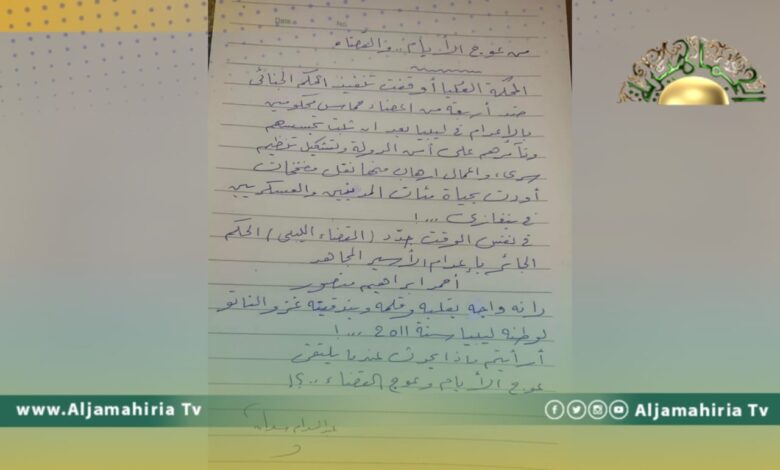 Date
No.
من عوج الأيام.. والقضاء
المحكمة العليا أوقفت تنفيذ الحكم الجنائي
ضد أربعة من أعضاء حماس محكومين
بالإعدام في ليبيا بعد ان ثبت تجسسهم
وتآمرهم على أمن الدولة وتشكيل تنظيم
سري، واعمال ارهاب منها نقل مفخخات
أودت بحياة مئات المدنيين والعسكريين
في بنغازي ...!
في نفس الوقت جدّد (القضاء الليبي) الحكم
الجائر بإعدام الأسير المجاهد
أحمد ابراهيم منصور
لانه واجه بقلبه وقلمه وبندقيته غزو الناتو
لوطنه ليبيا سنة 2011 ...!
أرأيتم ماذا يحدث عندما يلتقي
عوج الأيام وعوج القضاء..؟!
الجماهيرية
www.Aljamahiria Tv
Aljamahiria Tv